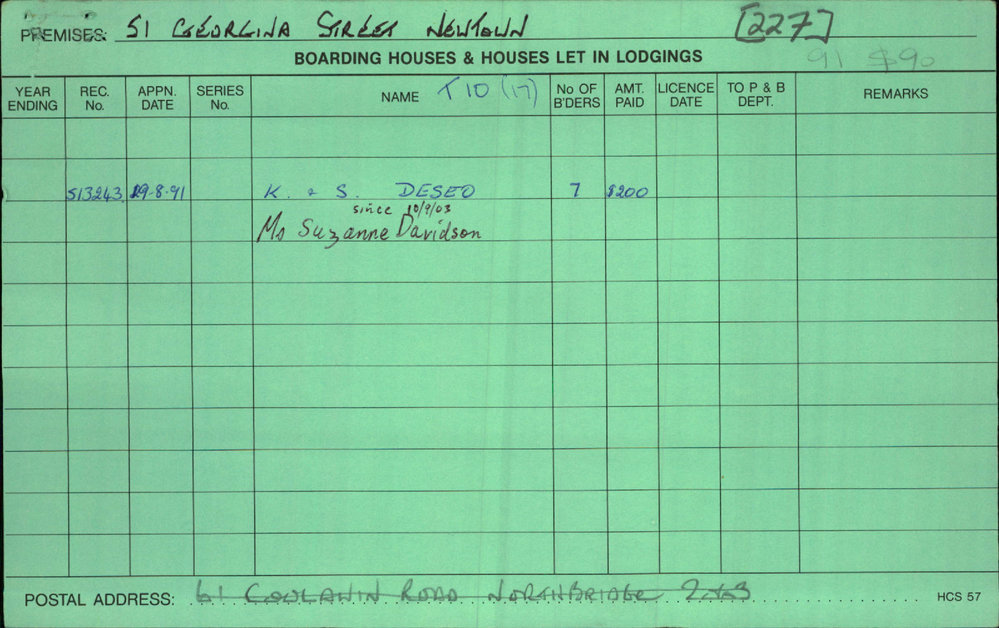 PREMISES: 51 GEORGINA STREET NEWTOWN [227]
BOARDING HOUSES & HOUSES LET IN LODGINGS 91 $90
YEAR ENDING REC. No. APPN. DATE SERIES No. NAME T10 (17) No OF B'DERS AMT. PAID LICENCE DATE TO P & B DEPT. REMARKS
513243 29-8-91 K. & S. DESEO 7 $200
since 10/9/03
Ms Suzanne Davidson
POSTAL ADDRESS: 61 ROAD NORTHBRIDGE HCS 57